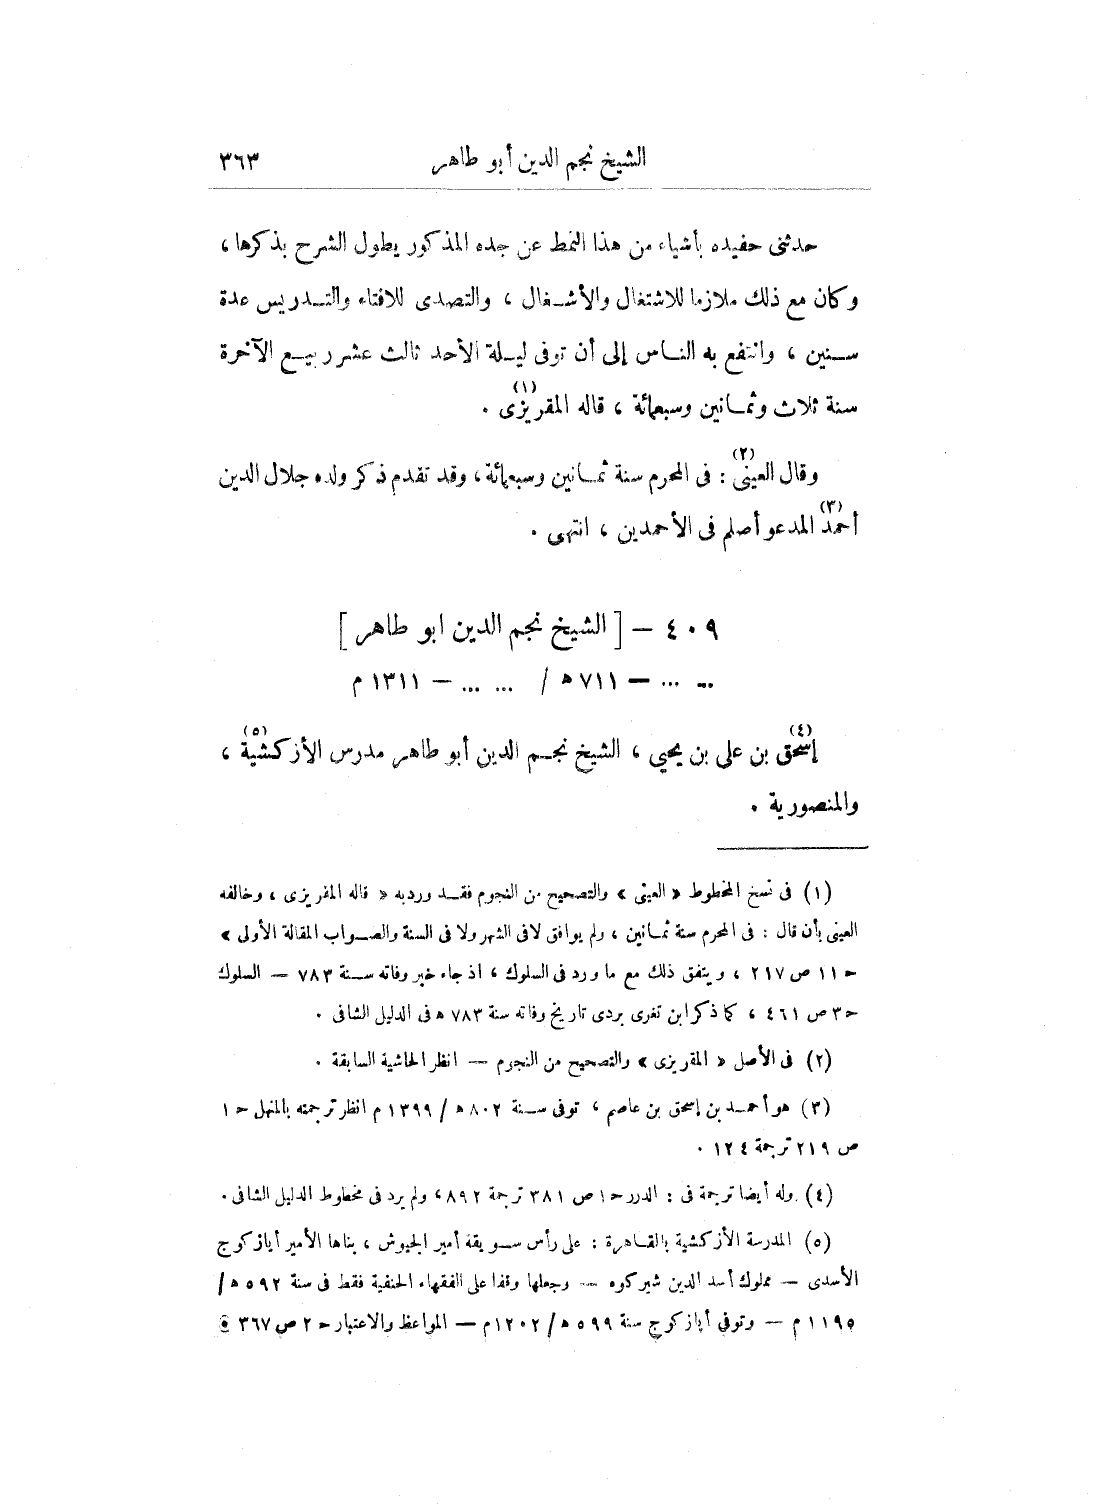 الشيخ نجم الدين أبو طاهر ٣٦٣
حدثنى حفيده بأشياء من هذا النمط عن جده المذكور يطول الشرح بذكرها ،
وكان مع ذلك ملازما للاشتغال والأشغال ، والتصدى للافتاء والتدريس عدة
سنين ، وانتفع به الناس إلى أن توفى ليلة الأحد ثالث عشر ربيع الآخرة
سنة ثلاث وثمانين وسبعمائة ، قاله المقريزى (١) .
وقال العينى (٢) : فى المحرم سنة ثمانين وسبعمائة ، وقد تقدم ذكر ولده جلال الدين
أحمد (٣) المدعو أصلم فى الأحمدين ، انتهى .
٤٠٩ – [ الشيخ نجم الدين ابو طاهر ]
... ... – ٧١١ ه / ... ... – ١٣١١ م
إسحق (٤) بن على بن يحيي ، الشيخ نجم الدين أبو طاهر مدرس الأزكشية (٥) ،
والمنصورية .
(١) فى نسخ المخطوط « العينى » والتصحيح من النجوم فقد ورد به « قاله المقريزى ، وخالفه
العينى بأن قال : فى المحرم سنة ثمانين ، ولم يوافق لا فى الشهر ولا فى السنة والصواب المقالة الأولى »
حـ ١١ ص ٢١٧ ، ويتفق ذلك مع ما ورد فى السلوك ، اذ جاء خبر وفاته سنة ٧٨٣ – السلوك
حـ ٣ ص ٤٦١ ، كما ذكر ابن تغرى بردى تاريخ وفاته سنة ٧٨٣ ه فى الدليل الشافى .
(٢) فى الأصل « المقريزى » والتصحيح من النجوم – انظر الحاشية السابقة .
(٣) هو أحمد بن إسحق بن عاصم ، توفى سنة ٨٠٢ ه / ١٣٩٩ م انظر ترجمته بالمنهل حـ ١
ص ٢١٩ ترجمة ١٢٤ .
(٤) وله أيضا ترجمة فى : الدرر حـ ١ ص ٣٨١ ترجمة ٨٩٢ ، ولم يرد فى مخطوط الدليل الشافى .
(٥) المدرسة الأزكشية بالقاهرة : على رأس سويقة أمير الجيوش ، بناها الأمير أيازكوج
الأسدى – مملوك أسد الدين شيركوه – وجعلها وقفا على الفقهاء الحنفية فقط فى سنة ٥٩٢ ه /
١١٩٥ م – وتوفي أيازكوج سنة ٥٩٩ ه / ١٢٠٢ م – المواعظ والاعتبار حـ ٢ ص ٣٦٧